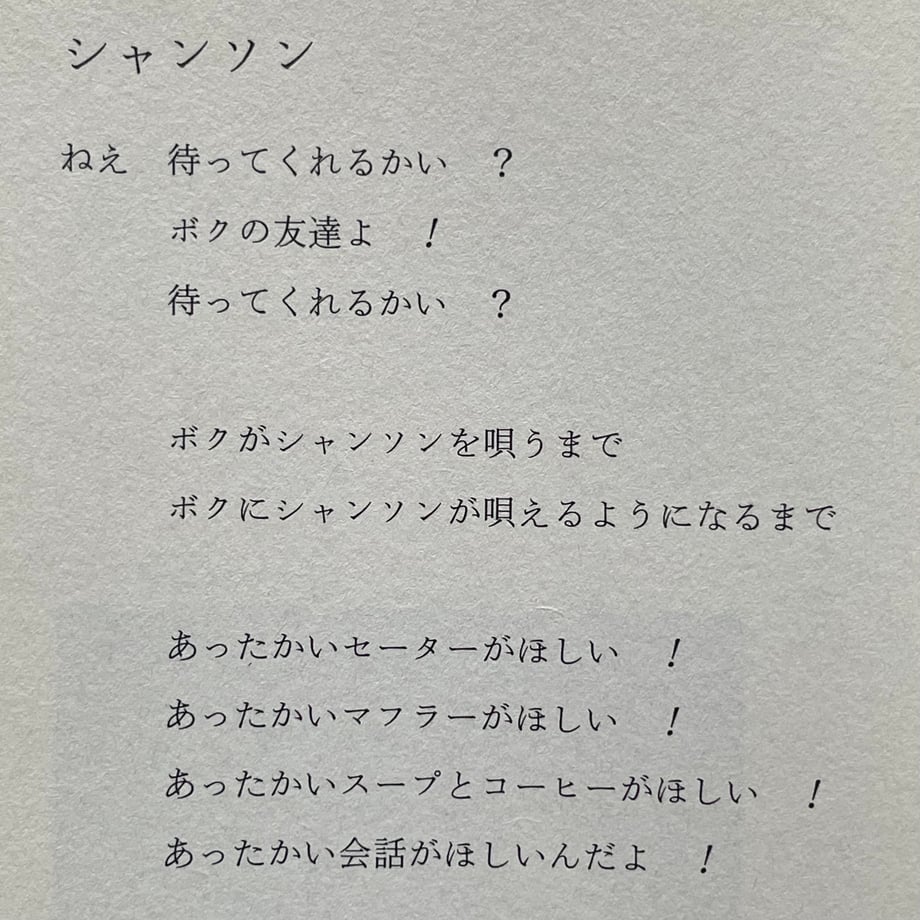 シャンソン
ねえ　待ってくれるかい　？
ボクの友達よ　！
待ってくれるかい　？
ボクがシャンソンを唄うまで
ボクにシャンソンが唄えるようになるまで
あったかいセーターがほしい　！
あったかいマフラーがほしい　！
あったかいスープとコーヒーがほしい　！
あったかい会話がほしいんだよ　！